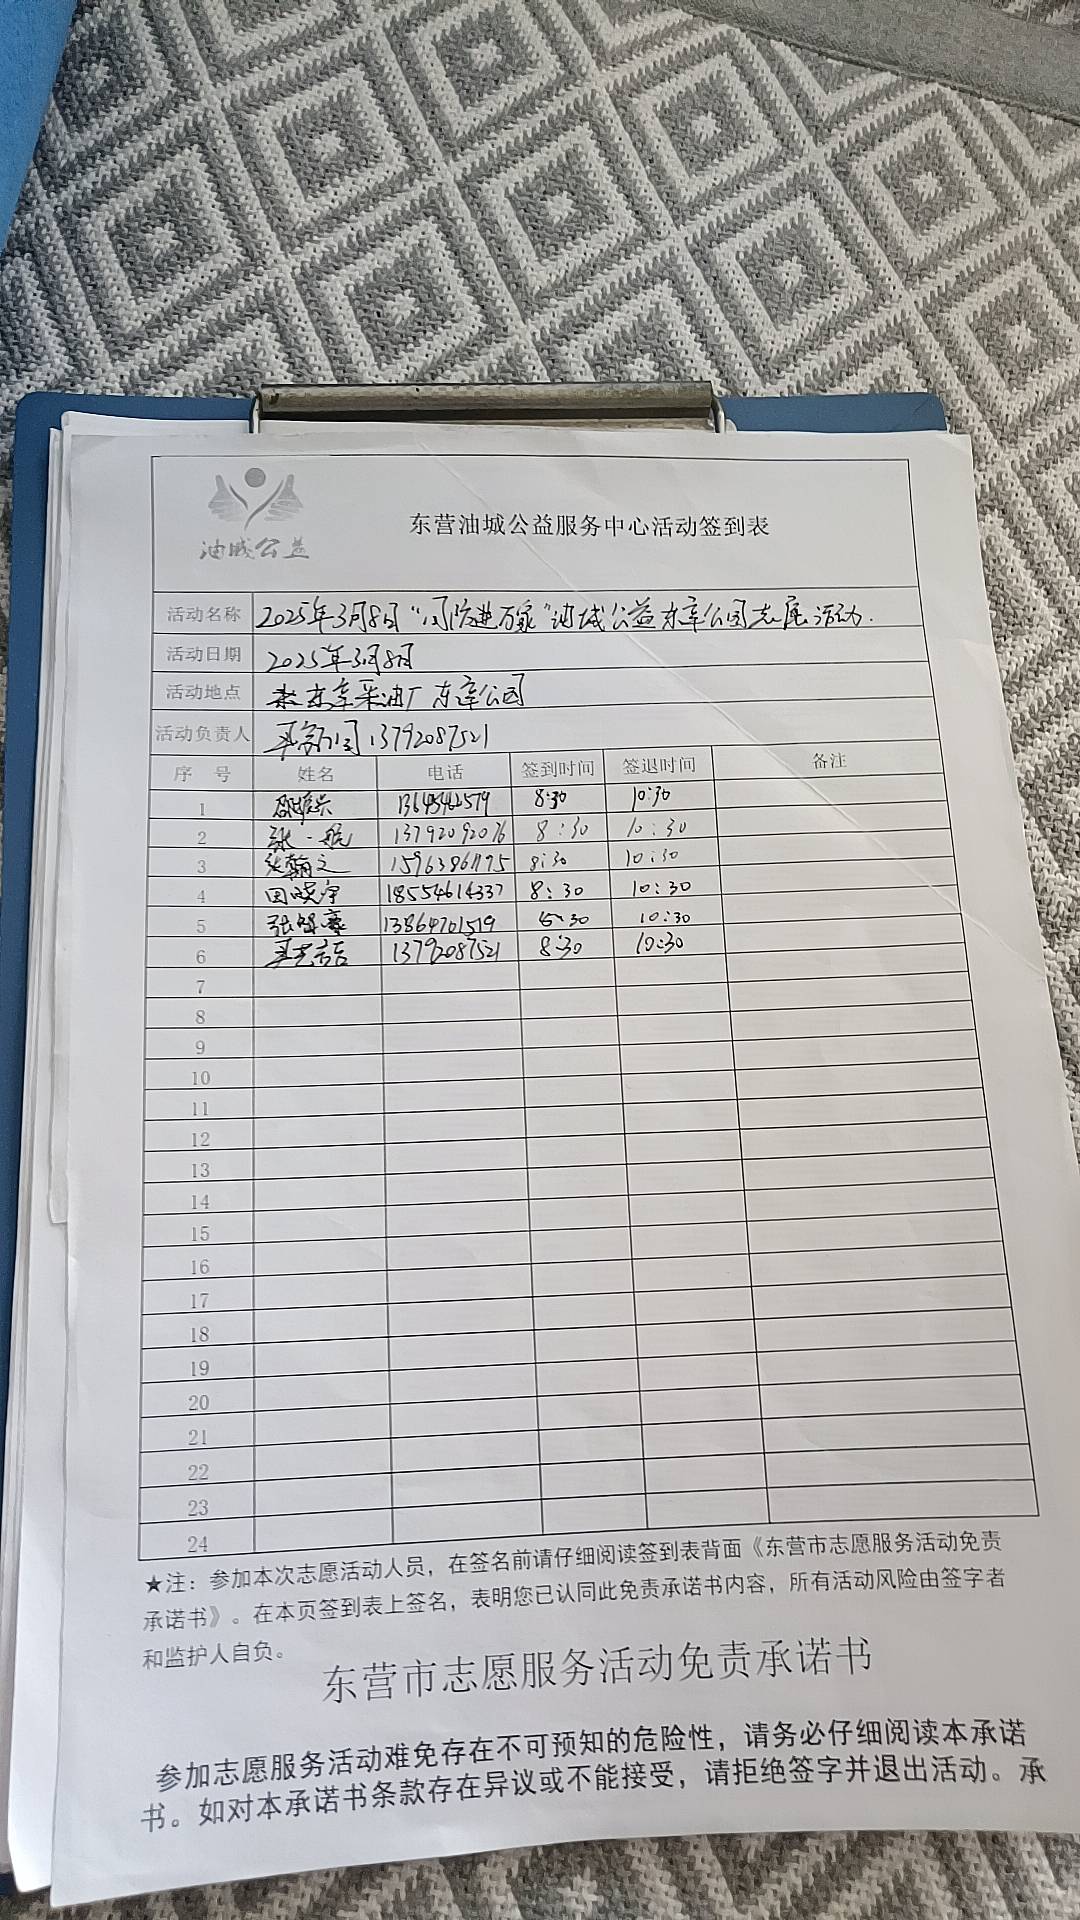 油城公益
东营油城公益服务中心活动签到表
活动名称 2025年3月8日“ 进万家”油城公益东辛公园志愿活动.
活动日期 2025年3月8日
活动地点 东辛采油厂东辛公园
活动负责人 13792087521
序 号 姓名 电话 签到时间 签退时间 备注
1 8:30 10:30
2 张一航 13792092076 8:30 10:30
3 张翰文 15963861175 8:30 10:30
4 田晓宇 18554614337 8:30 10:30
5 张 13864701519 10:30
6 13792087521 8:30 10:30
7
8
9
10
11
12
13
14
15
16
17
18
19
20
21
22
23
24
★注：参加本次志愿活动人员，在签名前请仔细阅读签到表背面《东营市志愿服务活动免责
承诺书》。在本页签到表上签名，表明您已认同此免责承诺书内容，所有活动风险由签字者
和监护人自负。
东营市志愿服务活动免责承诺书
参加志愿服务活动难免存在不可预知的危险性，请务必仔细阅读本承诺
书。如对本承诺书条款存在异议或不能接受，请拒绝签字并退出活动。承